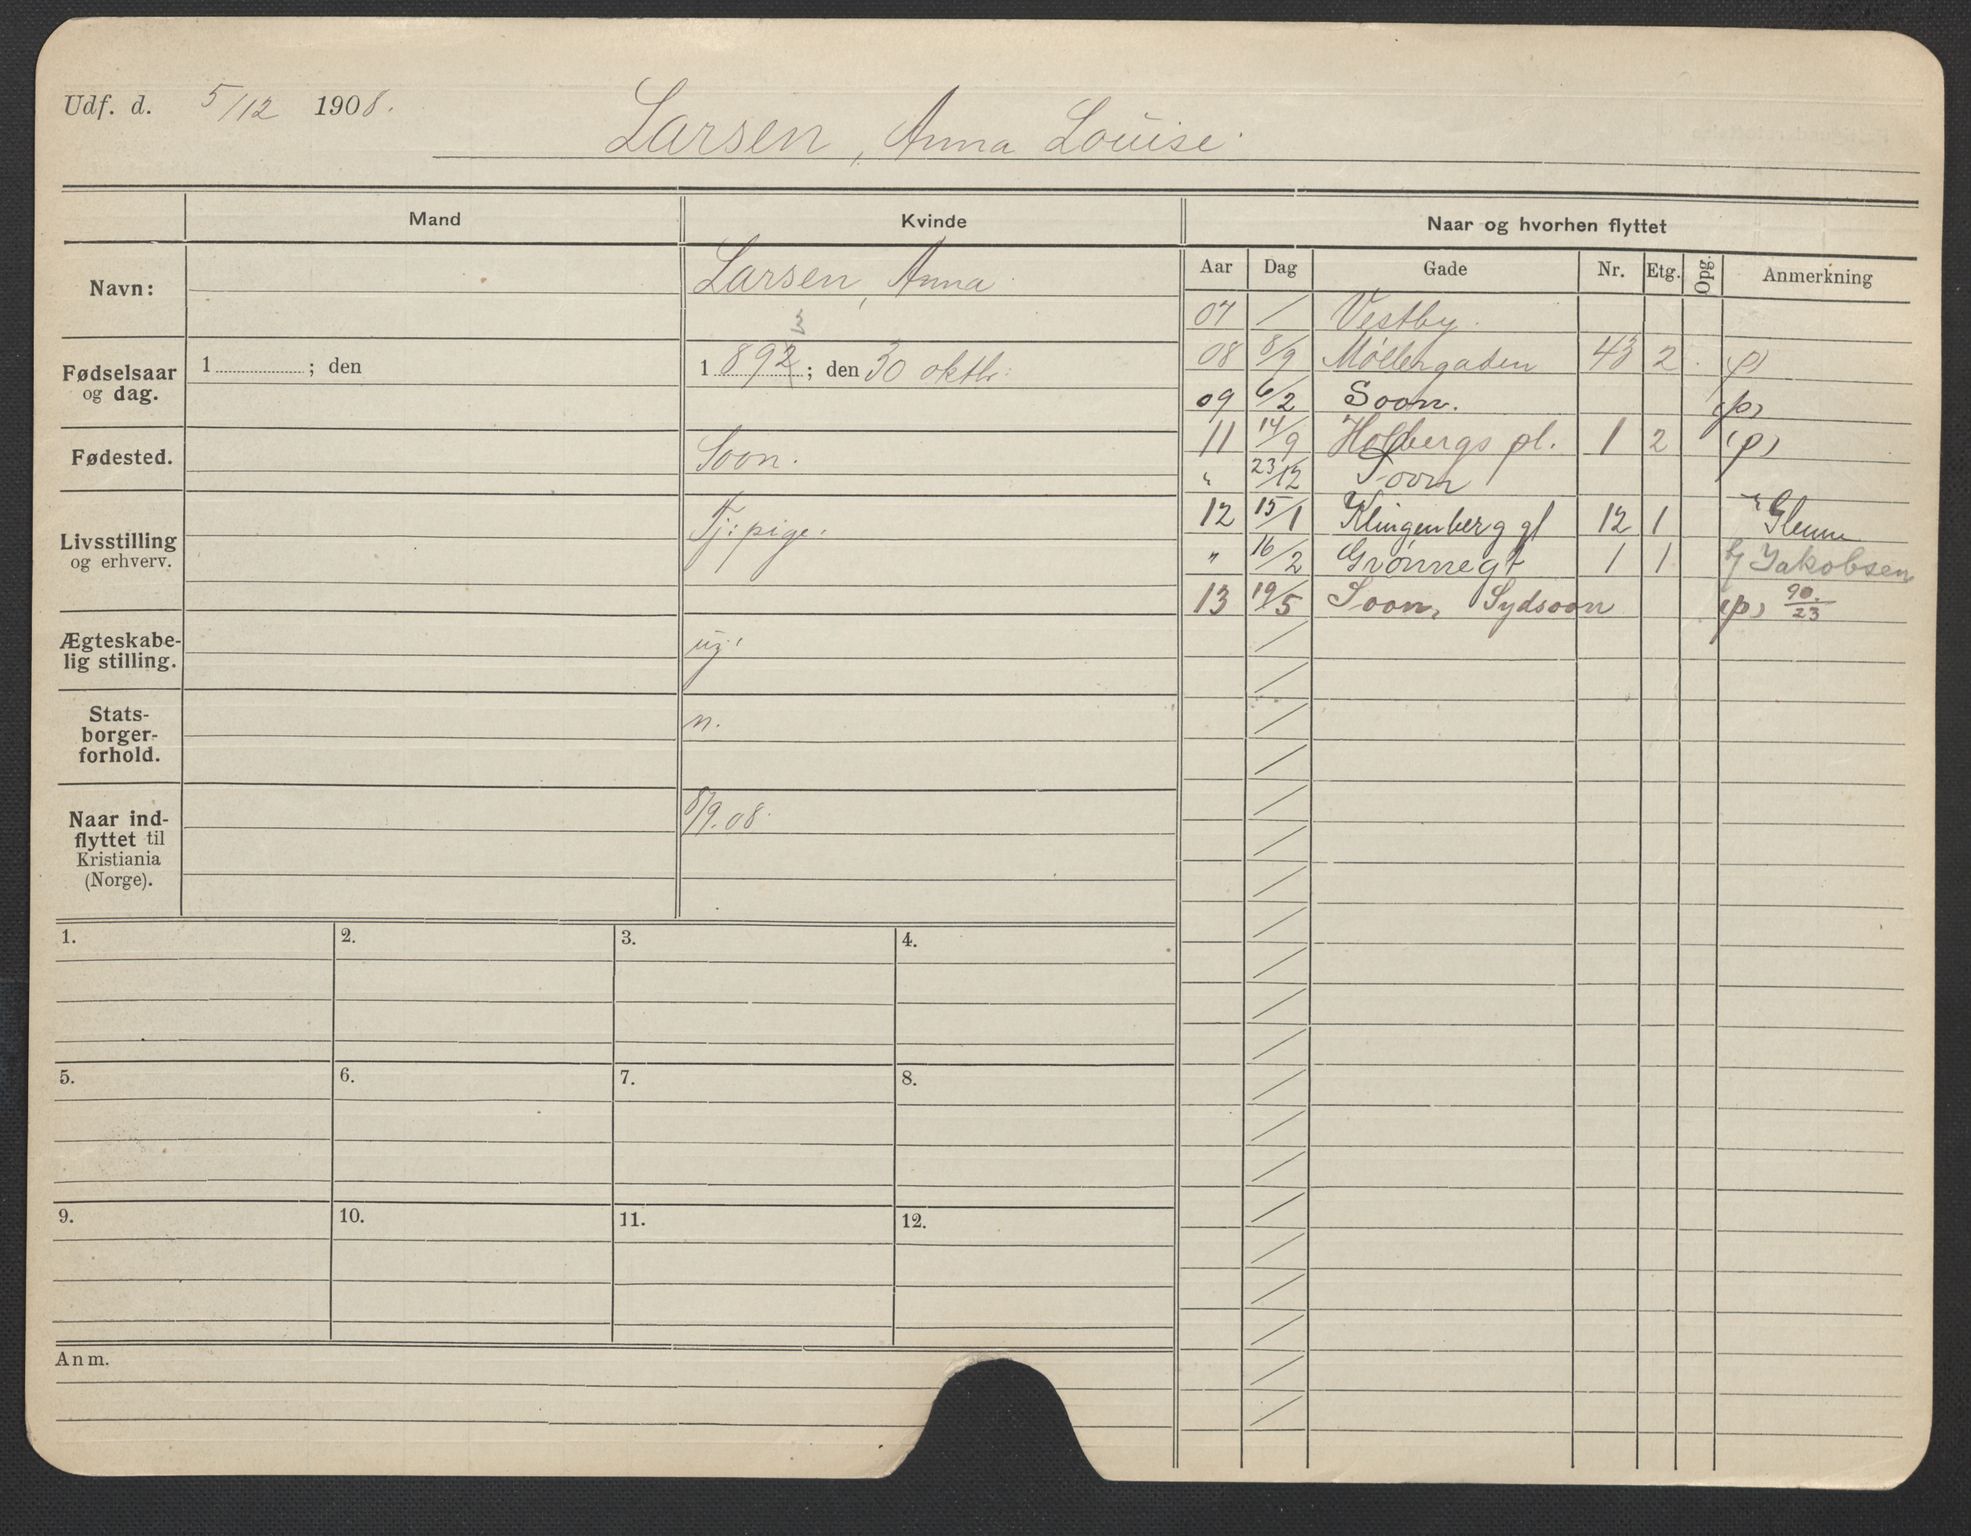 Udf. d. 5/12 1908.
Larsen, Anna Louise.
Mand
Kvinde
Naar og hvorhen flyttet
Aar Dag Gade Nr. Etg. Opg. Anmerkning
Navn:
Larsen, Anna
Fødselsaar og dag.
1 ; den
3
1 892 ; den 30 oktbr:
Fødested.
Soon.
Livsstilling og erhverv.
Tj: pige.
Ægteskabe-
lig stilling.
ug.
Stats-
borger-
forhold.
n.
Naar ind-
flyttet til
Kristiania
(Norge).
8/9.08.
07 / Vestby.
08 8/9 Møllergaden 43 2 (p)
09 6/2 Soon. (p)
11 14/9 Holbergs pl. 1 2 (p)
" 23/12 Soon
12 15/1 Klingenberg gt 12 1 Glenne
" 16/2 Grønnegt 1 1 Jakobsen
13 19/5 Soon, Sydsoon (p) 90./23
1. 2. 3. 4.
5. 6. 7. 8.
9. 10. 11. 12.
Anm.